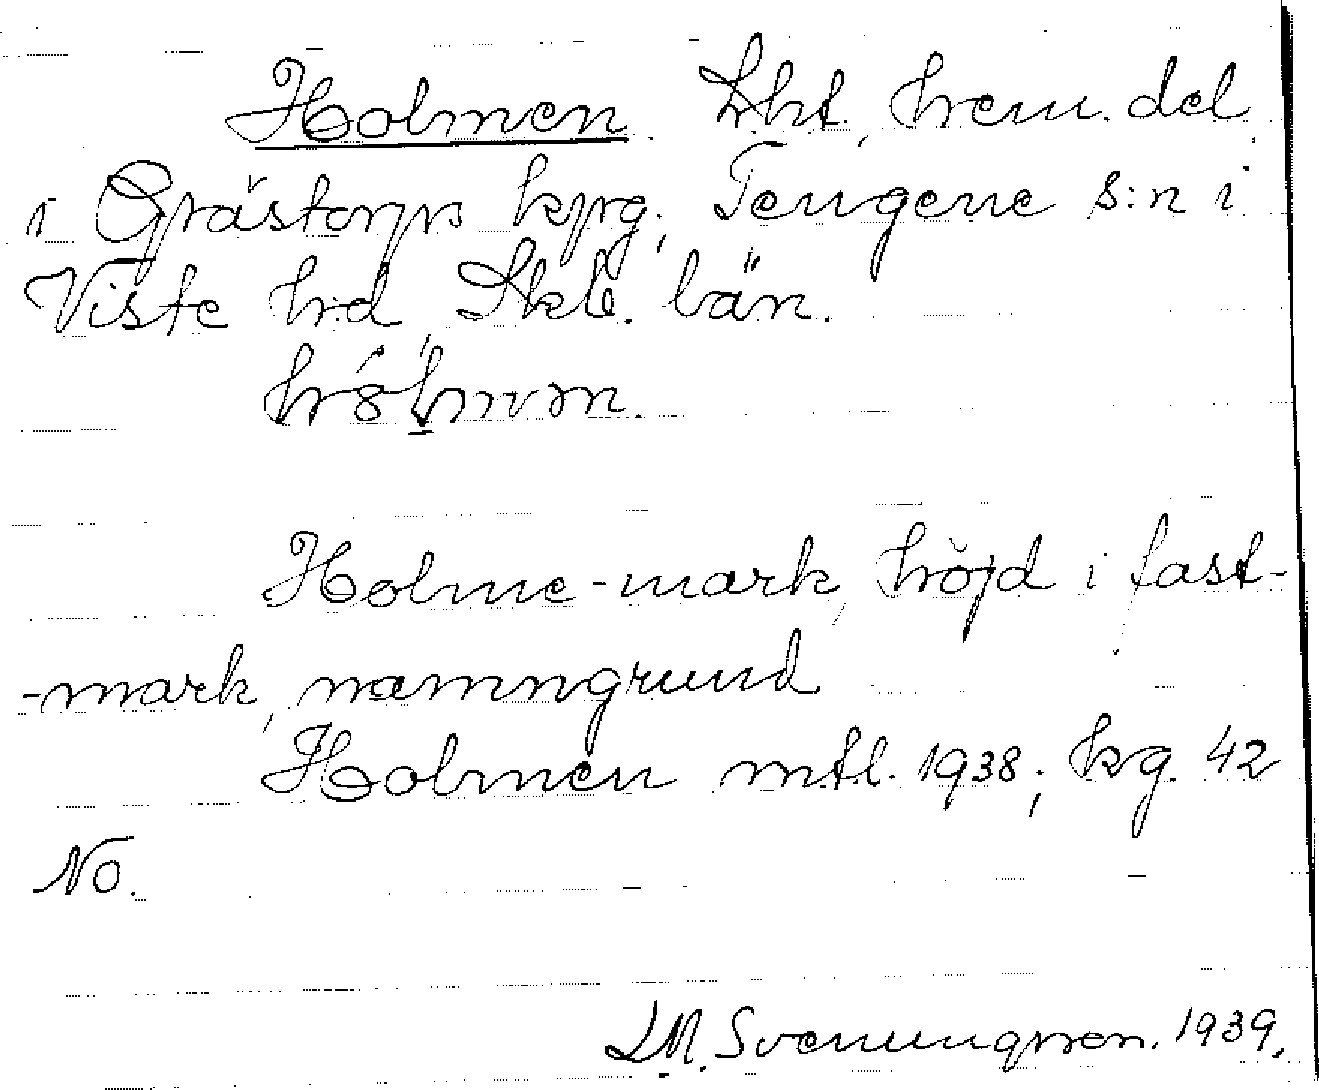 Holmen. Lht, hem. del
i Grästorps kpg, Tengene s:n i
Viste hd, Skb. län.
Holme-mark, höjd i fast-
-mark, namngrund
Holmen mtl. 1938; kg. 42
No.
LM. Svenungsson. 1939.